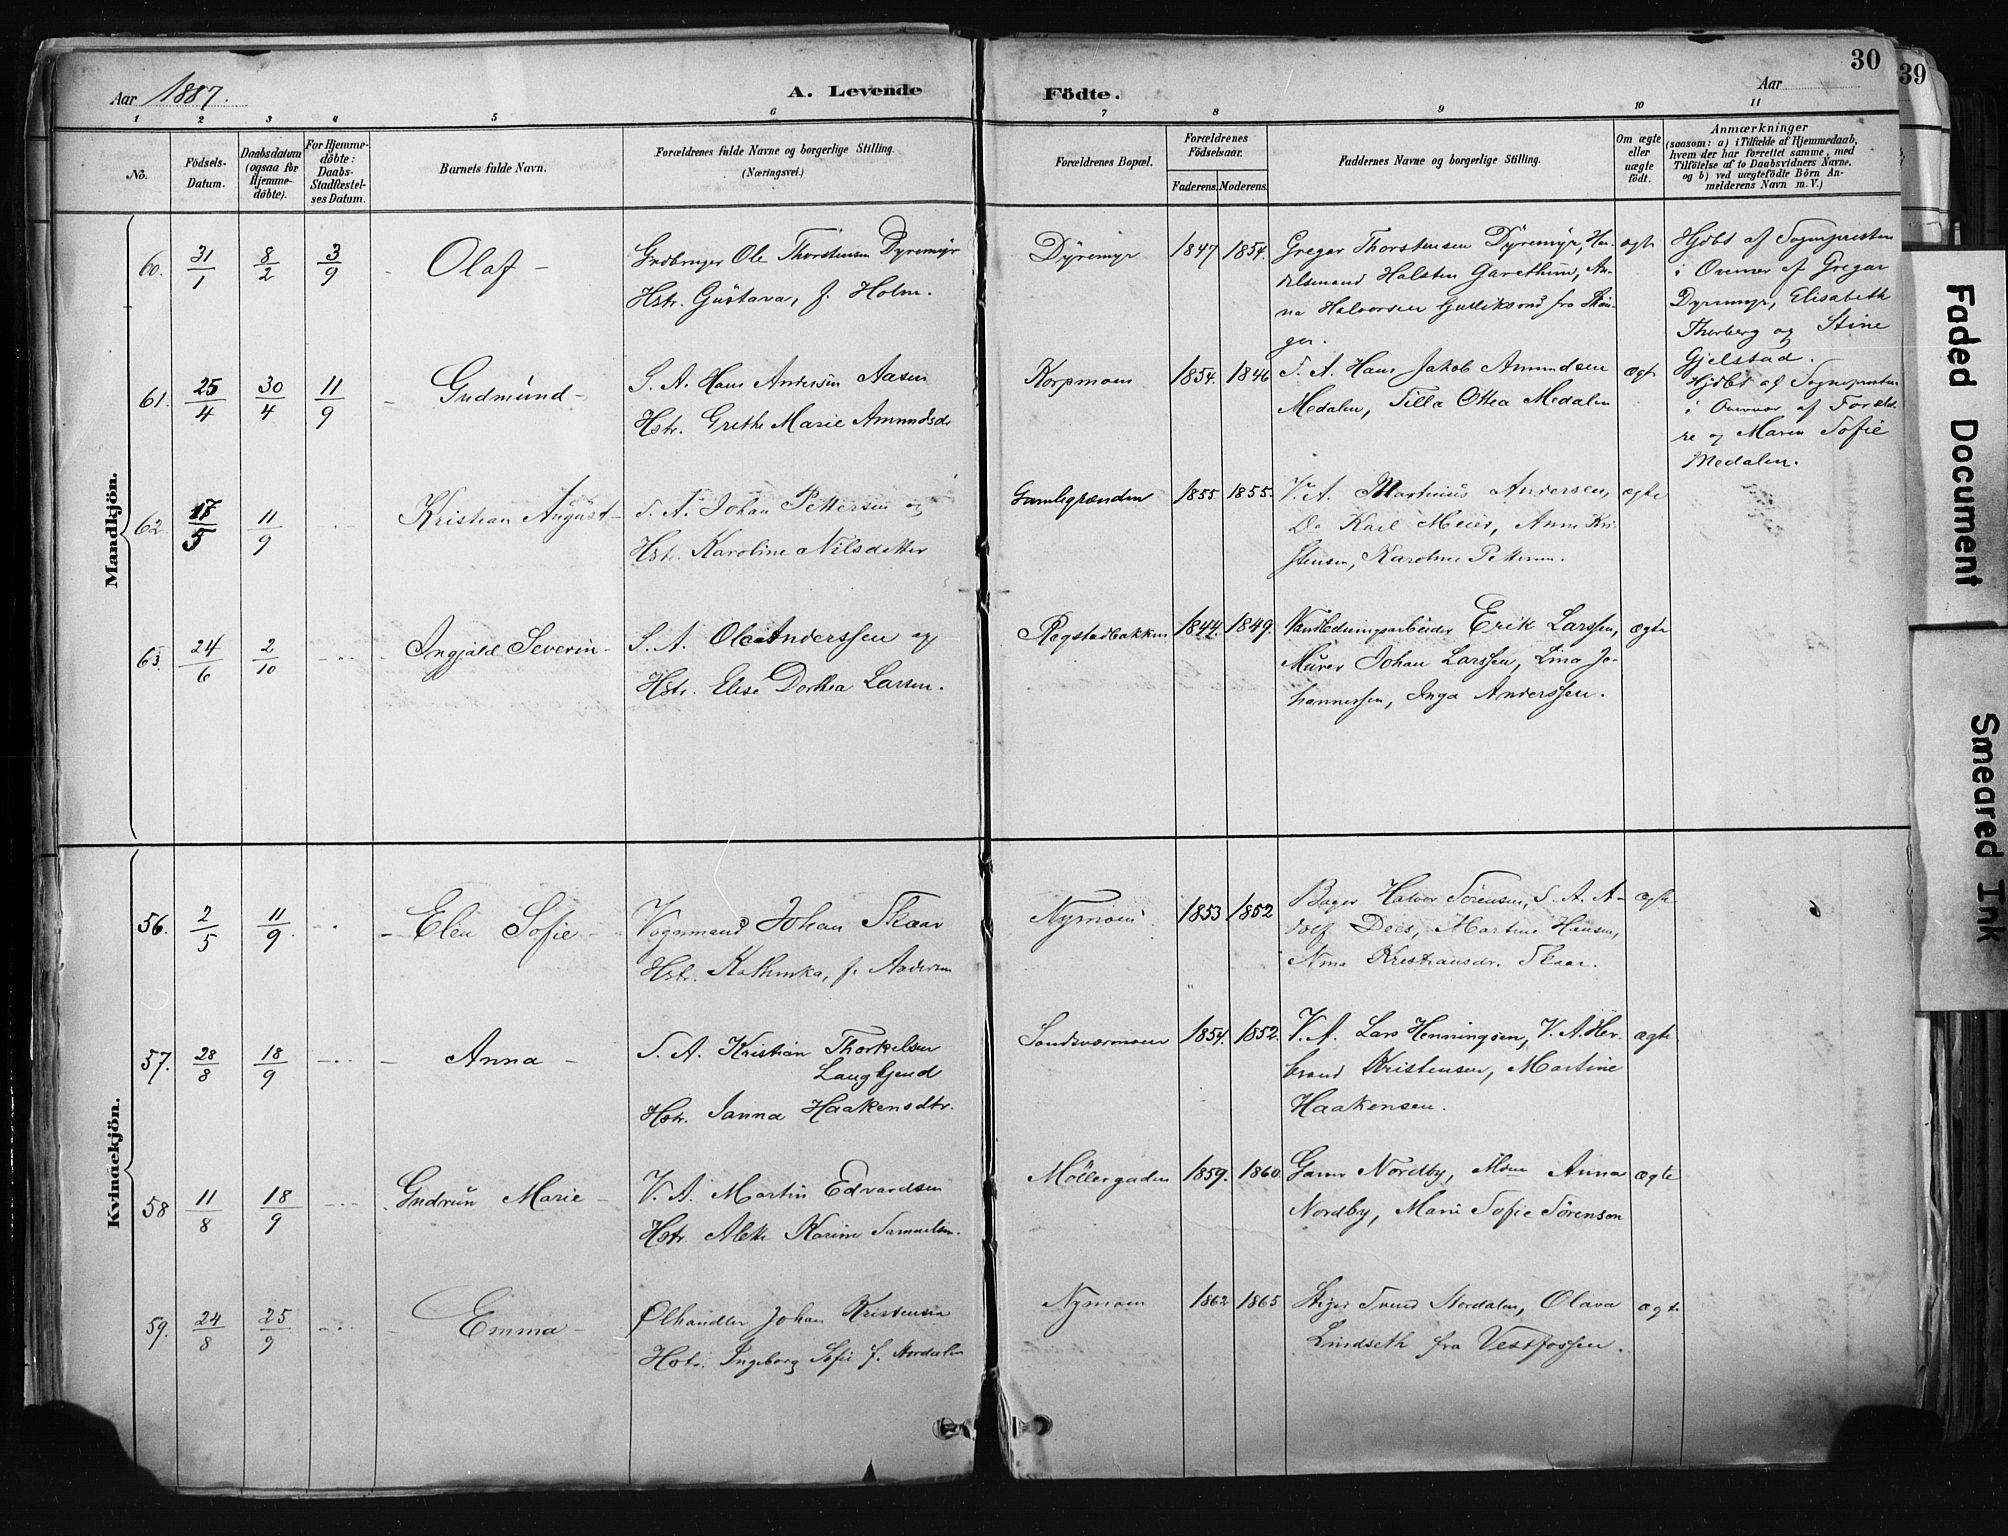 Aar 1887.
A. Levende
Födte.
Aar
30
39
1 2 3 4 5 6 7 8 9 10 11
No.
Födsels-Datum.
Daabsdatum (ogsaa for Hjemme-döbte).
For Hjemme-döbte: Daabs-Stadfæstel-ses Datum.
Barnets fulde Navn.
Forældrenes fulde Navne og borgerlige Stilling.
(Næringsvei.)
Forældrenes Bopæl.
Forældrenes Födselsaar.
Faderens. Moderens.
Faddernes Navne og borgerlige Stilling.
Om ægte eller uægte födt.
Anmærkninger
(saasom: a) i Tilfælde af Hjemmedaab,
hvem der har forrettet samme, med
Tilföielse af to Daabsvidners Navne,
og b) ved uægtefödte Börn An-
melderens Navn m. V.)
Mandkjön.
60. 31/1 8/2 3/9 Olaf -
Gudbruger Ole Thorstensen Dyremyr
Hstr. Gustava, f. Holm.
Dyremyr 1847 1854.
Gregar Thorstensen Dyremyr, Han-
delsmand Halsten Garethun, An-
na Halvorsen
ger.
ægte
Hjdbt af Sognepresten
i Overvær af Gregar
Dyremyr, Elisabeth
Thorberg og Stine
Gjelstad.
61. 25/4 30/4 11/9 - Gudmund -
S. A. Hans Andersen Aasen
Hstr. Grethe Marie Amundsdr
Korpmoen 1854. 1846
S. A. Hans Jakob Amundsen
Medalen, Tilla Ottea Medalen
ægte
Hjdbt af Sognepresten
i Overvær af Foræld-
re og Maren Sofie
Medalen.
62. 5 11/9 Kristian August -
S. A. Johan Pettersen og
Hstr. Karoline Nilsdatter
Gamlegrænden 1855 1855.
V. A. Martinus Andersen,
Do Karl Meier, Anne Kri-
stensen, Karoline Pettersen.
ægte
63. 24/6 2/10 Ingjald Severin -
S. A. Ole Anderssen og
Hstr. Elise Dorthea Larsen.
Rægstadbakken 1844. 1849.
Vandledningsarbeider Erik Larssen,
Murer Johan Larssen, Lina Jo-
hannessen, Inga Anderssen.
ægte
Kvindekjön.
56. 2/5 11/9 - Elen Sofie -
Vognmand Johan Skaar
Hstr. Kathinka, f. Andersen
Nymoen 1853 1852
Bager Halvor Sörensen, S. A. A-
dolf Dees, Martine Hansen,
Nina Kristiansdr. Skaar.
ægte
57. 28/8 18/9 - Anna -
S. A. Kristian Thorkelsen
Langkjend
Hstr. Janna Haakensdtr.
Sandsværmoen 1854. 1852.
V. A. Lars Henningsen, V. A. Her-
brand Kristensen, Martine
Haakensen.
ægte
58 11/8 18/9 Gudrun Marie -
V. A. Martin Edvardsen
Hstr. Alette Karine Samuelsen.
Möllergaden 1859. 1860.
Nordby, Anna
Nordby, Marie Sofie Sörensen
ægte
59. 24/8 25/9 - Emma -
Ølhandler Johan Kristensen
Hstr. Ingeborg Sofie f. Stordalen
Nymoen 1862 1865
Stiger Svend Stordalen, Olava
Lindseth fra Vestfossen.
ægte
Faded Document
Smeared Ink